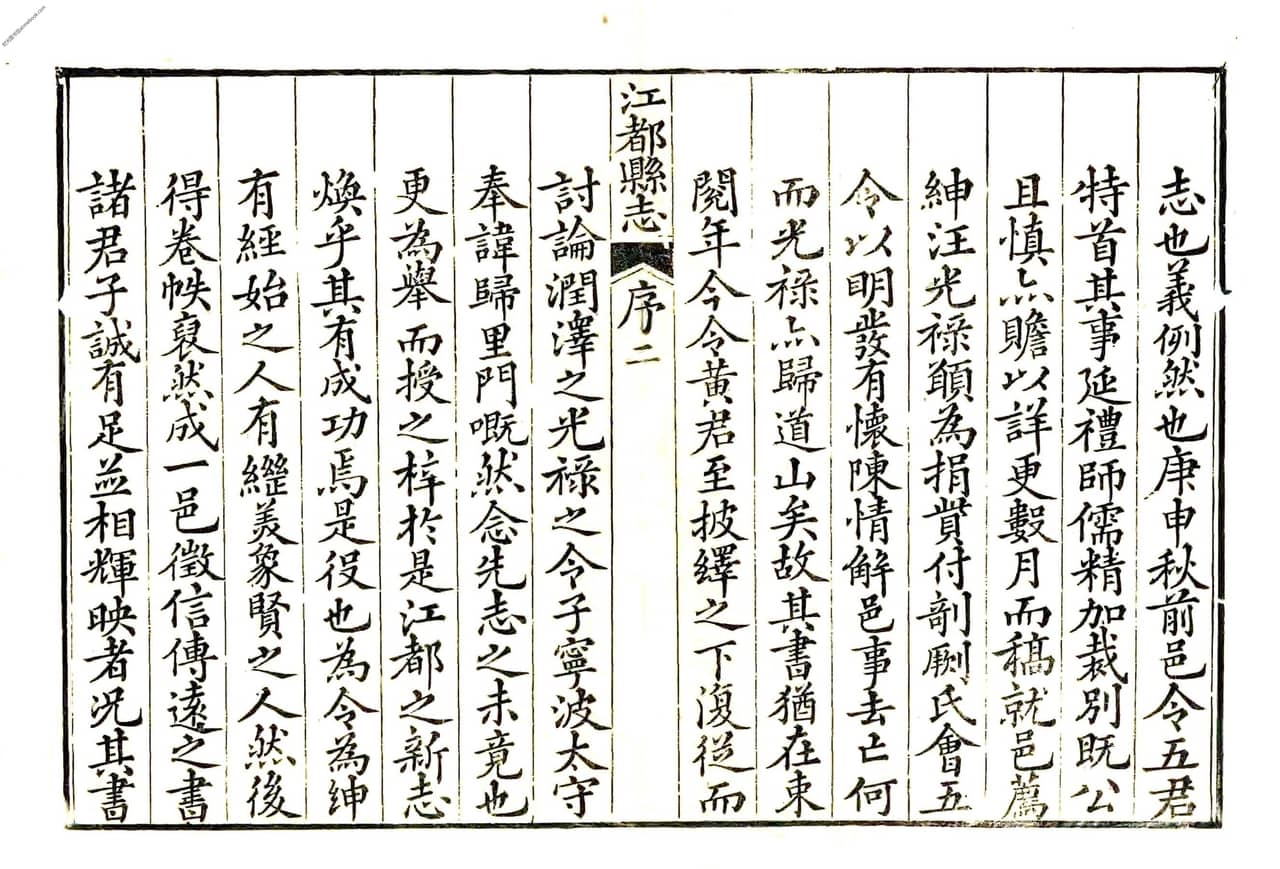 志也義例然也庚申秋前邑令五君
特首其事延禮師儒精加裁別既公
且慎亦贍以詳更數月而稿就邑薦
紳汪光祿願為捐貲付剞劂氏會五
令以明發有懷陳情解邑事去亡何
而光祿亦歸道山矣故其書猶在束
閣年今令黃君至披繹之下復從而
江都縣志
序二
討論潤澤之光祿之令子寧波太守
奉諱歸里門嘅然念先志之未竟也
更為舉而授之梓於是江都之新志
煥乎其有成功焉是役也為令為紳
有經始之人有繼美象賢之人然後
得卷帙裒然成一邑徵信傳遠之書
諸君子誠有足並相輝映者況其書